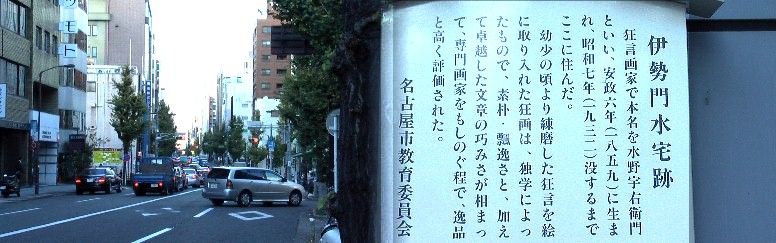 伊勢門水宅跡
狂言画家で本名を水野宇右衛門
といい、安政六年（一八五九）に生ま
れ、昭和七年（一九三二）没するまで
ここに住んだ。
幼少の頃より練磨した狂言を絵
に取り入れた狂画は、独学によっ
たもので、素朴・飄逸さと、加え
て卓越した文章の巧みさが相まっ
て、専門画家をもしのぐ程で、逸品
と高く評価された。
名古屋市教育委員会